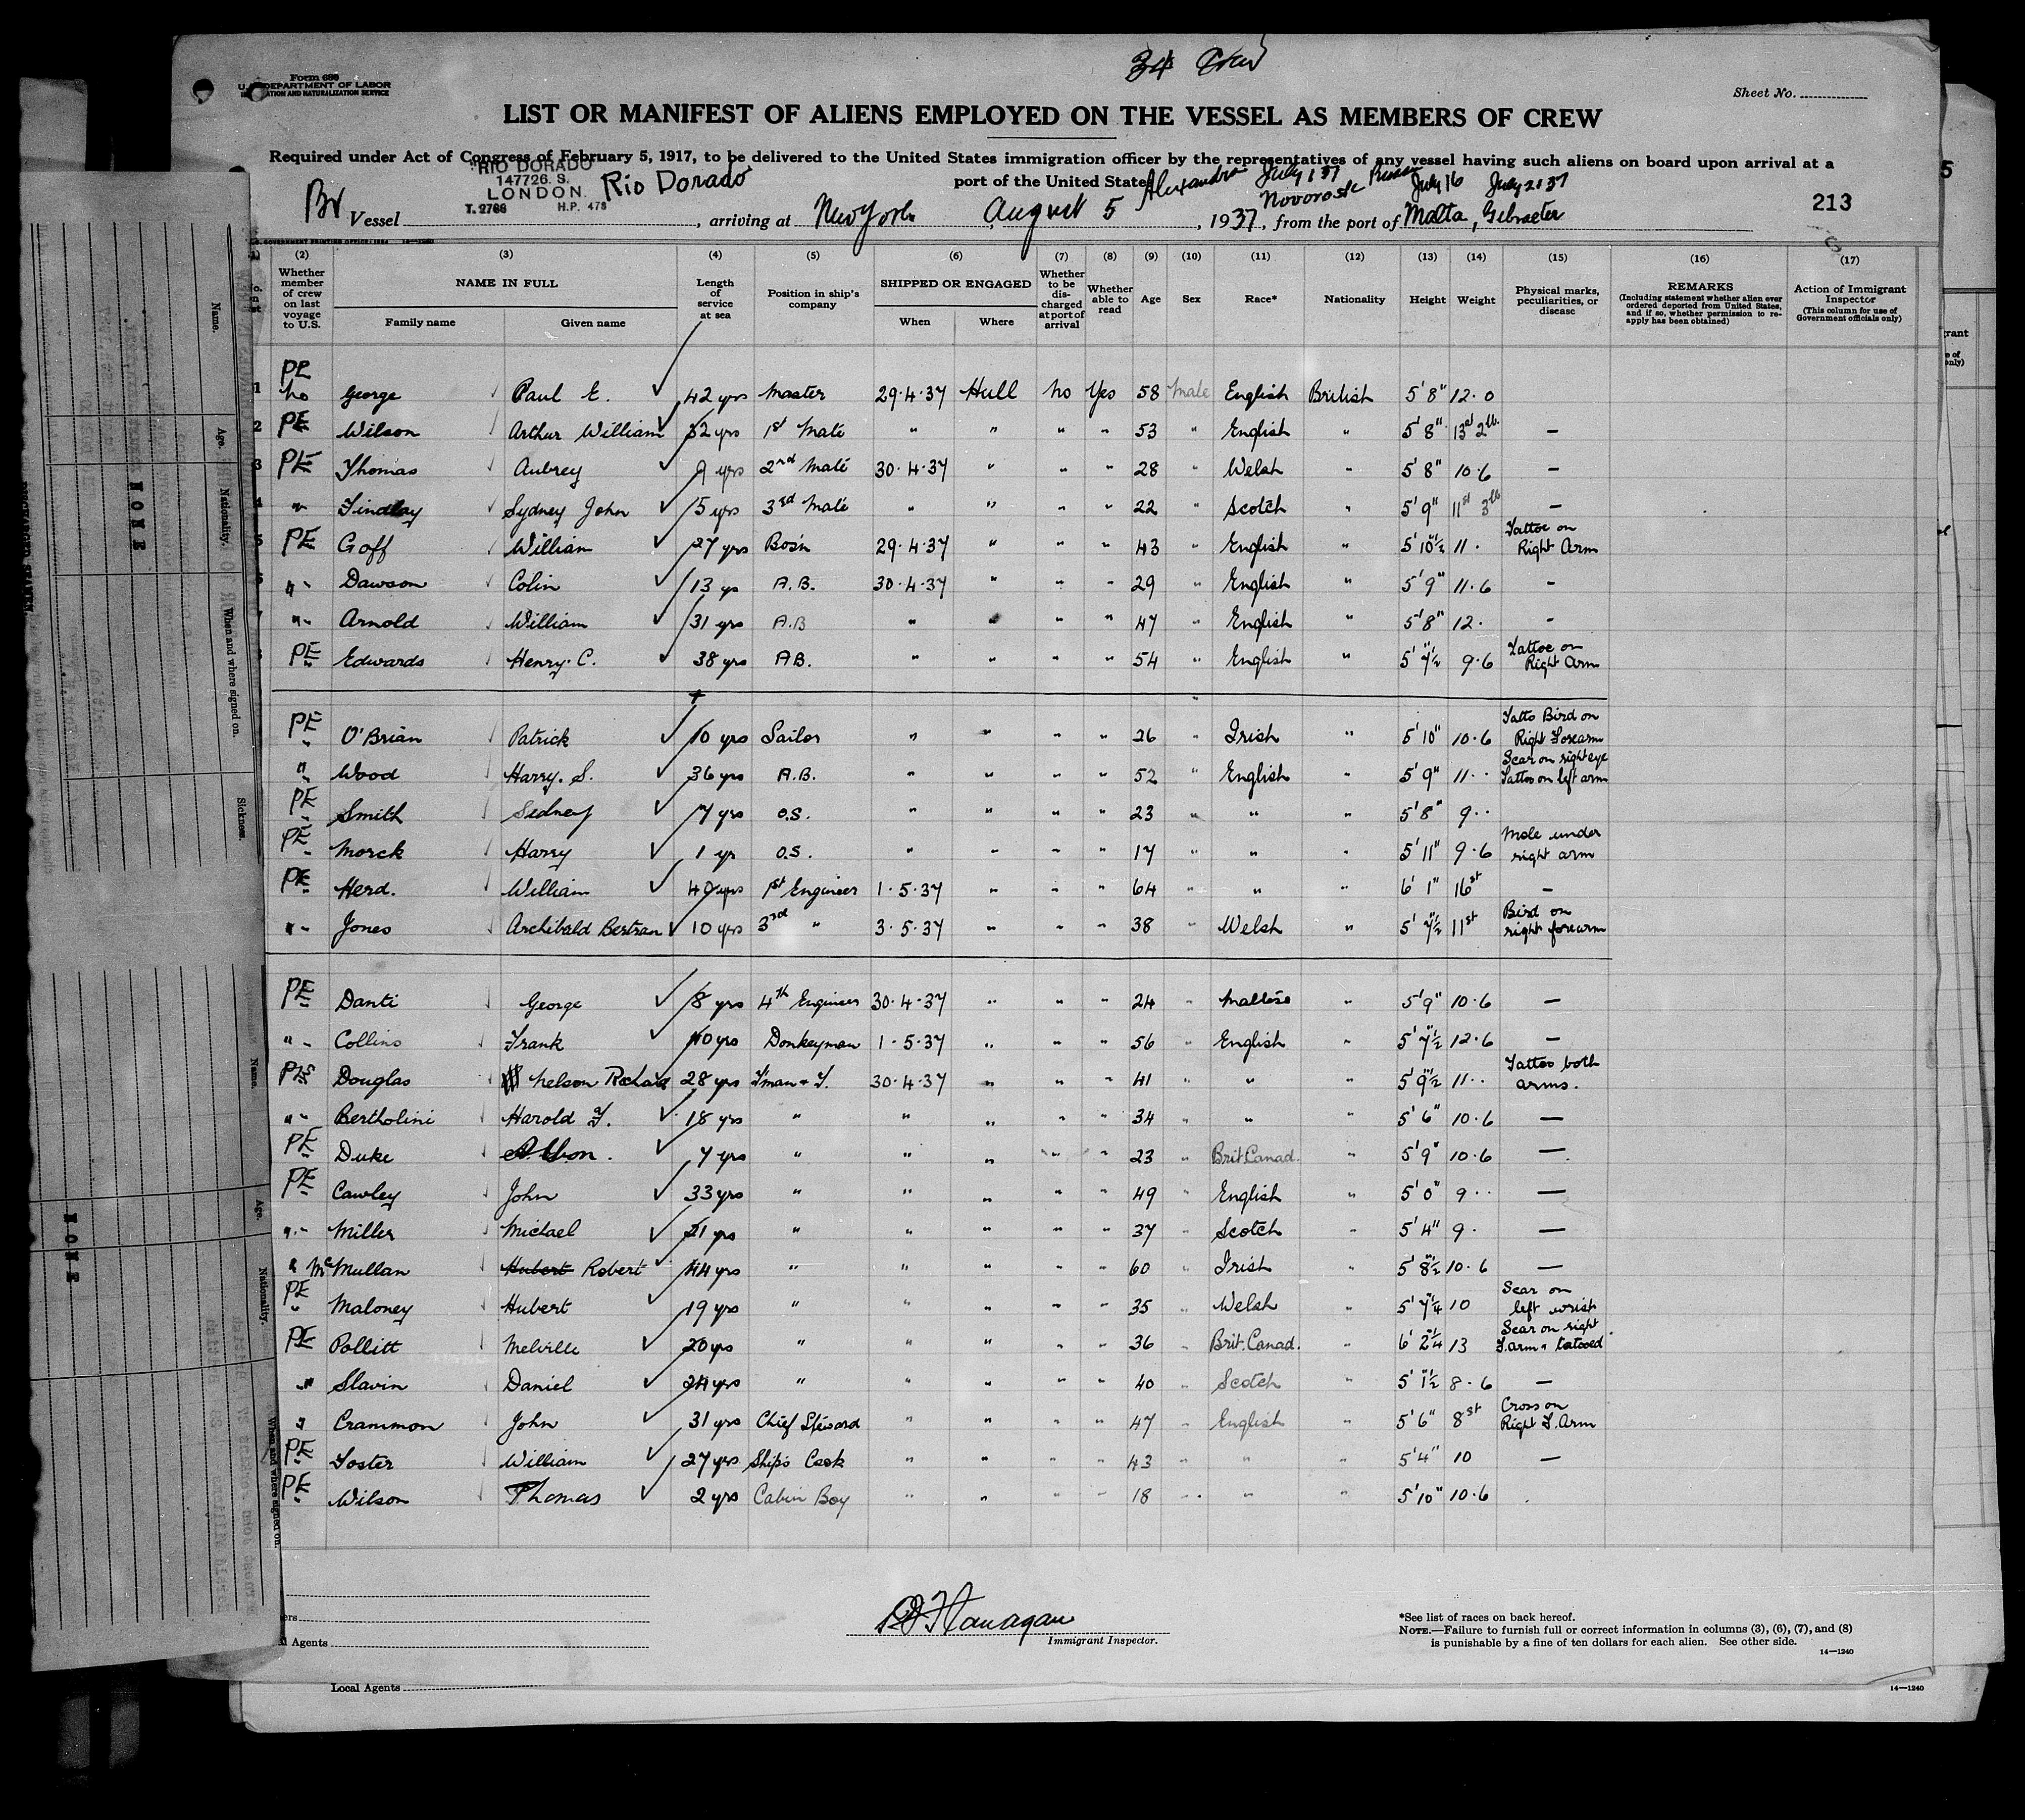 34 Crew
Form 680
U. S. DEPARTMENT OF LABOR
IMMIGRATION AND NATURALIZATION SERVICE
Sheet No.
LIST OR MANIFEST OF ALIENS EMPLOYED ON THE VESSEL AS MEMBERS OF CREW
Required under Act of Congress of February 5, 1917, to be delivered to the United States immigration officer by the representatives of any vessel having such aliens on board upon arrival at a
port of the United States
"RIO DORADO"
147726. S.
LONDON
T. 2766 H.P. 478
Alexandria July 1 37 Novorossk Russia July 16 July 21 37
213
Br Vessel Rio Dorado, arriving at New York, August 5, 1937, from the port of Malta, Gibralter
(2) (3) (4) (5) (6) (7) (8) (9) (10) (11) (12) (13) (14) (15) (16) (17)
Whether member of crew on last voyage to U.S. NAME IN FULL Family name Given name Length of service at sea Position in ship's company SHIPPED OR ENGAGED When Where Whether to be discharged at port of arrival Whether able to read Age Sex Race* Nationality Height Weight Physical marks, peculiarities, or disease REMARKS (Including statement whether alien ever ordered deported from United States, and if so, whether permission to reapply has been obtained) Action of Immigrant Inspector (This column for use of Government officials only)
1 PE no George Paul E. 42 yrs Master 29·4·37 Hull No Yes 58 Male English British 5' 8" 12·0
2 PE Wilson Arthur William 32 yrs 1st Mate " " " " 53 " English " 5' 8" 13st 2lb. —
3 PE Thomas Aubrey 9 yrs 2nd Mate 30·4·37 " " " 28 " Welsh " 5' 8" 10·6 —
4 " Findlay Sydney John 5 yrs 3rd Mate " " " " 22 " Scotch " 5' 9" 11st 3lb —
5 PE Goff William 27 yrs Bos'n 29·4·37 " " " 43 " English " 5' 10½" 11· Tattoe on Right Arm
" Dawson Colin 13 yrs A.B. 30·4·37 " " " 29 " English " 5' 9" 11·6 -
" Arnold William 31 yrs A.B " " " " 47 " English " 5' 8" 12· -
PE Edwards Henry. C. 38 yrs A.B. " " " " 54 " English " 5' 7½" 9·6 Tattoe on Right Arm
PE O'Brian Patrick 10 yrs Sailor " " " " 26 " Irish " 5' 10" 10·6 Tatto Bird on Right Forearm
" Wood Harry. S. 36 yrs A.B. " " " " 52 " English " 5' 9" 11·· Scar on right eye Tattoo on left arm
PE Smith Sidney 7 yrs O.S. " " " " 23 " " " 5' 8" 9··
PE Morck Harry 1 yr O.S. " " " " 17 " " " 5' 11" 9·6 Mole under right arm
PE Herd. William 40 yrs 1st Engineer 1·5·37 " " " 64 " " " 6' 1" 16st —
" Jones Archibald Bertran 10 yrs 3rd " 3·5·37 " " " 38 " Welsh " 5' 7½" 11st Bird on right forearm
PE Danti George 8 yrs 4th Engineer 30·4·37 " " " 24 " Maltese " 5' 9" 10·6 —
" Collins Frank 40 yrs Donkeyman 1·5·37 " " " 56 " English " 5' 7½" 12·6 —
Douglas Nelson Richard 28 yrs F'man & T. 30·4·37 " " " 41 " " " 5' 9½" 11·· Tattoo both arms.
" Bertholini Harold F. 18 yrs " " " " " 34 " " " 5' 6" 10·6 —
PE Duke 7 yrs " " " " " 23 " Brit. Canad. " 5' 9" 10·6 —
PE Cawley John 33 yrs " " " " " 49 " English " 5' 0" 9·· —
" Miller Michael 21 yrs " " " " " 37 " Scotch " 5' 4" 9· —
" McMullan Hubert Robert 44 yrs " " " " " 60 " Irish " 5' 8½" 10·6 —
PE Maloney Hubert 19 yrs " " " " " 35 " Welsh " 5' 7¼" 10 Scar on left wrist
PE Pollitt Melville 20 yrs " " " " " 36 " Brit. Canad. " 6' 2¼" 13 Scar on right F.arm & tattooed
" Slavin Daniel 24 yrs " " " " " 40 " Scotch " 5' 1½" 8·6 —
" Crammon John 31 yrs Chief Steward " " " " 47 " English " 5' 6" 8st Cross on Right F. Arm
PE Foster William 27 yrs Ship's Cook " " " " 43 " " " 5' 4" 10 —
PE Wilson Thomas 2 yrs Cabin Boy " " " " 18 " " " 5' 10" 10·6
Immigrant Inspector.
*See list of races on back hereof.
NOTE.—Failure to furnish full or correct information in columns (3), (6), (7), and (8)
is punishable by a fine of ten dollars for each alien. See other side.
14—1240
Agents
Local Agents
14—1240
Name. Age. Nationality. When and where signed on. Sickness.
NONE
Name. Age. Nationality. When and where signed on.
NONE